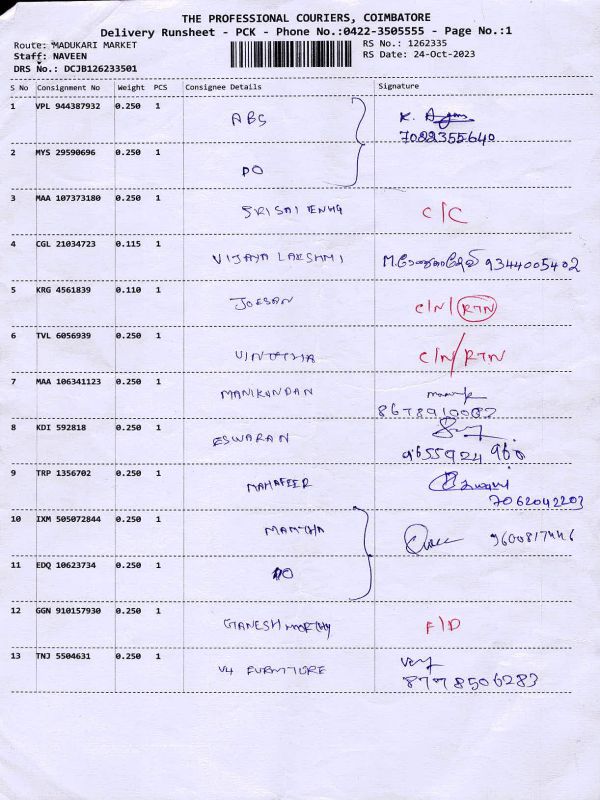 THE PROFESSIONAL COURIERS, COIMBATORE
Delivery Runsheet - PCK - Phone No.:0422-3505555 - Page No.:1
Route: MADUKARI MARKET
RS No.: 1262335
Staff: NAVEEN
RS Date: 24-Oct-2023
DRS No.: DCJB126233501
S No Consignment No Weight PCS Consignee Details Signature
1 VPL 944387932 0.250 1 ABS K.
7022355640
2 MYS 29590696 0.250 1 DO
3 MAA 107373180 0.250 1 SRI SAI ENHG C/C
4 CGL 21034723 0.115 1 VIJAYA LAKSHMI M. 9344005402
5 KRG 4561839 0.110 1 JOESAN C/N/RTN
6 TVL 6056939 0.250 1 C/N/RTN
7 MAA 106341123 0.250 1 MANIKANDAN
8678910082
8 KDI 592818 0.250 1 ESWARAN
9655924960
9 TRP 1356702 0.250 1 MAHAFEER
7062042203
10 IXM 505072844 0.250 1 MAMTHA
11 EDQ 10623734 0.250 1 DO
12 GGN 910157930 0.250 1 GANESH MORTHY F/D
13 TNJ 5504631 0.250 1 V4 FURNITORE
8778506283